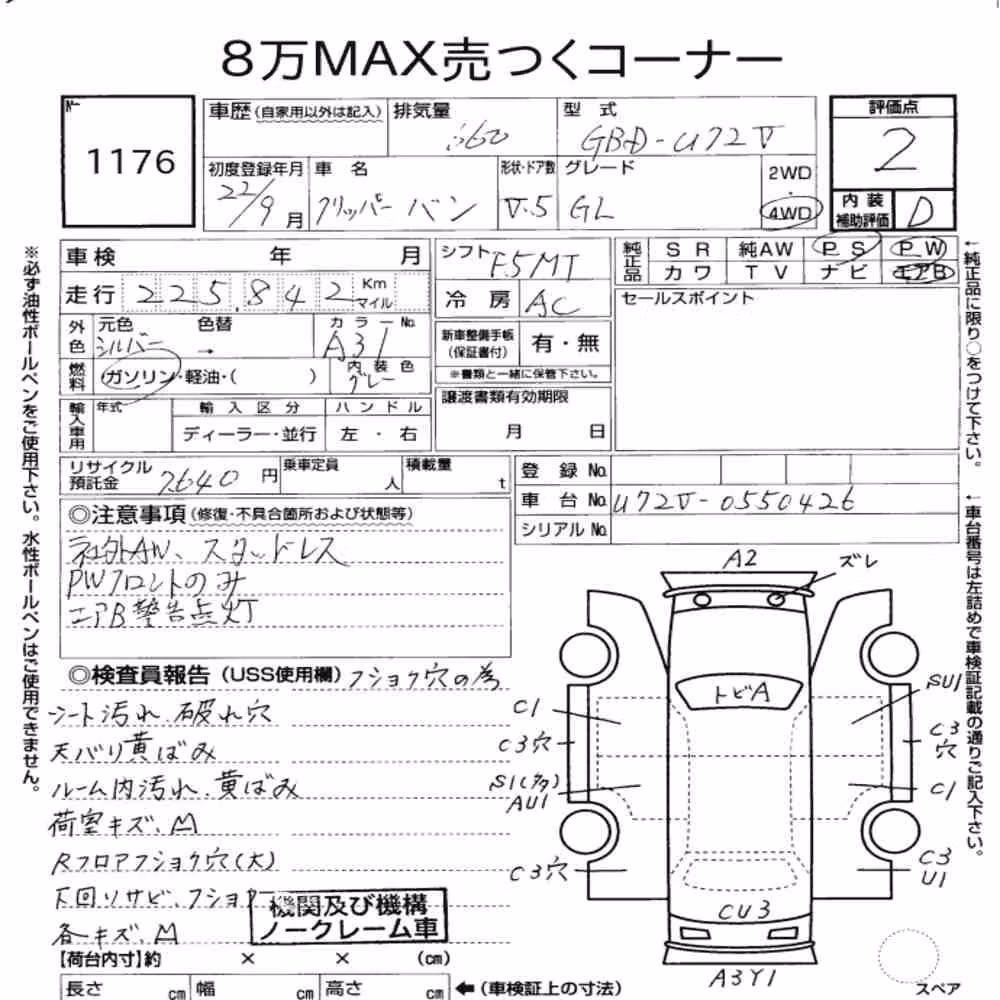 8万MAX売つくコーナー
№
1176
車歴(自家用以外は記入)
排気量
660
型 式
GBD-U72V
評価点
2
初度登録年月
22/9月
車 名
クリッパー バン
形状・ドア数
V.5
グレード
GL
2WD
・
4WD
内 装
補助評価
D
車検 年 月
走行 225,842 Km マイル
シフト F5MT
冷 房 AC
純正品
SR 純AW PS PW
カワ TV ナビ エアB
セールスポイント
外色
元色 シルバー
色替 →
カラーNo. A31
燃料
ガソリン・軽油・( )
内装色 グレー
新車整備手帳
(保証書付)
有・無
※書類と一緒に保管下さい。
輸入車用
年式
輸入区分
ディーラー・並行
ハンドル
左・右
譲渡書類有効期限
月 日
リサイクル
預託金 7640 円
乗車定員 人
積載量 t
登 録 No.
車 台 No. U72V-0550426
シリアル No.
◎注意事項(修復・不具合箇所および状態等)
社外AW、スタッドレス
PWフロントのみ
エアB警告点灯
◎検査員報告(USS使用欄)フショク穴の為
シート汚れ.破れ穴
天バリ黄ばみ
ルーム内汚れ.黄ばみ
荷室キズ、M
Rフロアフショク穴(大)
下回りサビ、フショク
各キズ、M
機関及び機構
ノークレーム車
【荷台内寸】約 × × (cm)
長さ cm 幅 cm 高さ cm
←(車検証上の寸法)
A2
ズレ
トビA
C1
SU1
C3穴
C3
穴
S1(多)
AU1
C1
C3穴
C3
U1
CU3
A3Y1
スペア
※必ず油性ボールペンをご使用下さい。水性ボールペンはご使用できません。
←純正品に限り○をつけて下さい。
←車台番号は左詰めで車検証記載の通りご記入下さい。